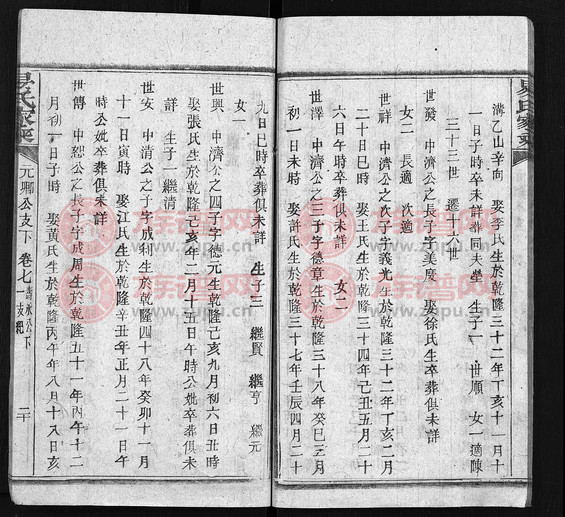 溝乙山辛向 娶李氏生於乾隆三十二年丁亥十一月十
一日子時卒未詳葬同夫塋 生子一 世順 女一適陳
三十三世 遷十六世
世發 中濟公之長子字美度 娶徐氏生卒葬俱未詳
女二 長適 次適
世祥 中濟公之次子字義光生於乾隆三十二年丁亥二月
二十日巳時 娶王氏生於乾隆三十四年己丑五月二十
六日午時卒葬俱未詳 女二
世澤 中濟公之三子字德章生於乾隆三十八年癸巳三月
初一日未時 娶許氏生於乾隆三十七年壬辰四月二十
九日巳時卒葬俱未詳 生子三 繼賢 繼亨 繼元
女一
世興 中濟公之四子字德元生於乾隆己亥九月初六日丑時
娶張氏生於乾隆己亥年二月十五日午時公妣卒葬俱未
詳 生子一繼清
世安 中清公之子字成利生於乾隆四十八年癸卯十一月
十一日寅時 娶江氏生於乾隆辛丑年正月二十一日午
時公妣卒葬俱未詳
世傳 中恕公之長子字成周生於乾隆五十一年丙午十二
月初一日子時 娶黃氏生於乾隆丙午年八月十八日亥
易氏家乘
元卿公支下 卷七
二十
易氏家乘
族谱网
www.zupu.cn